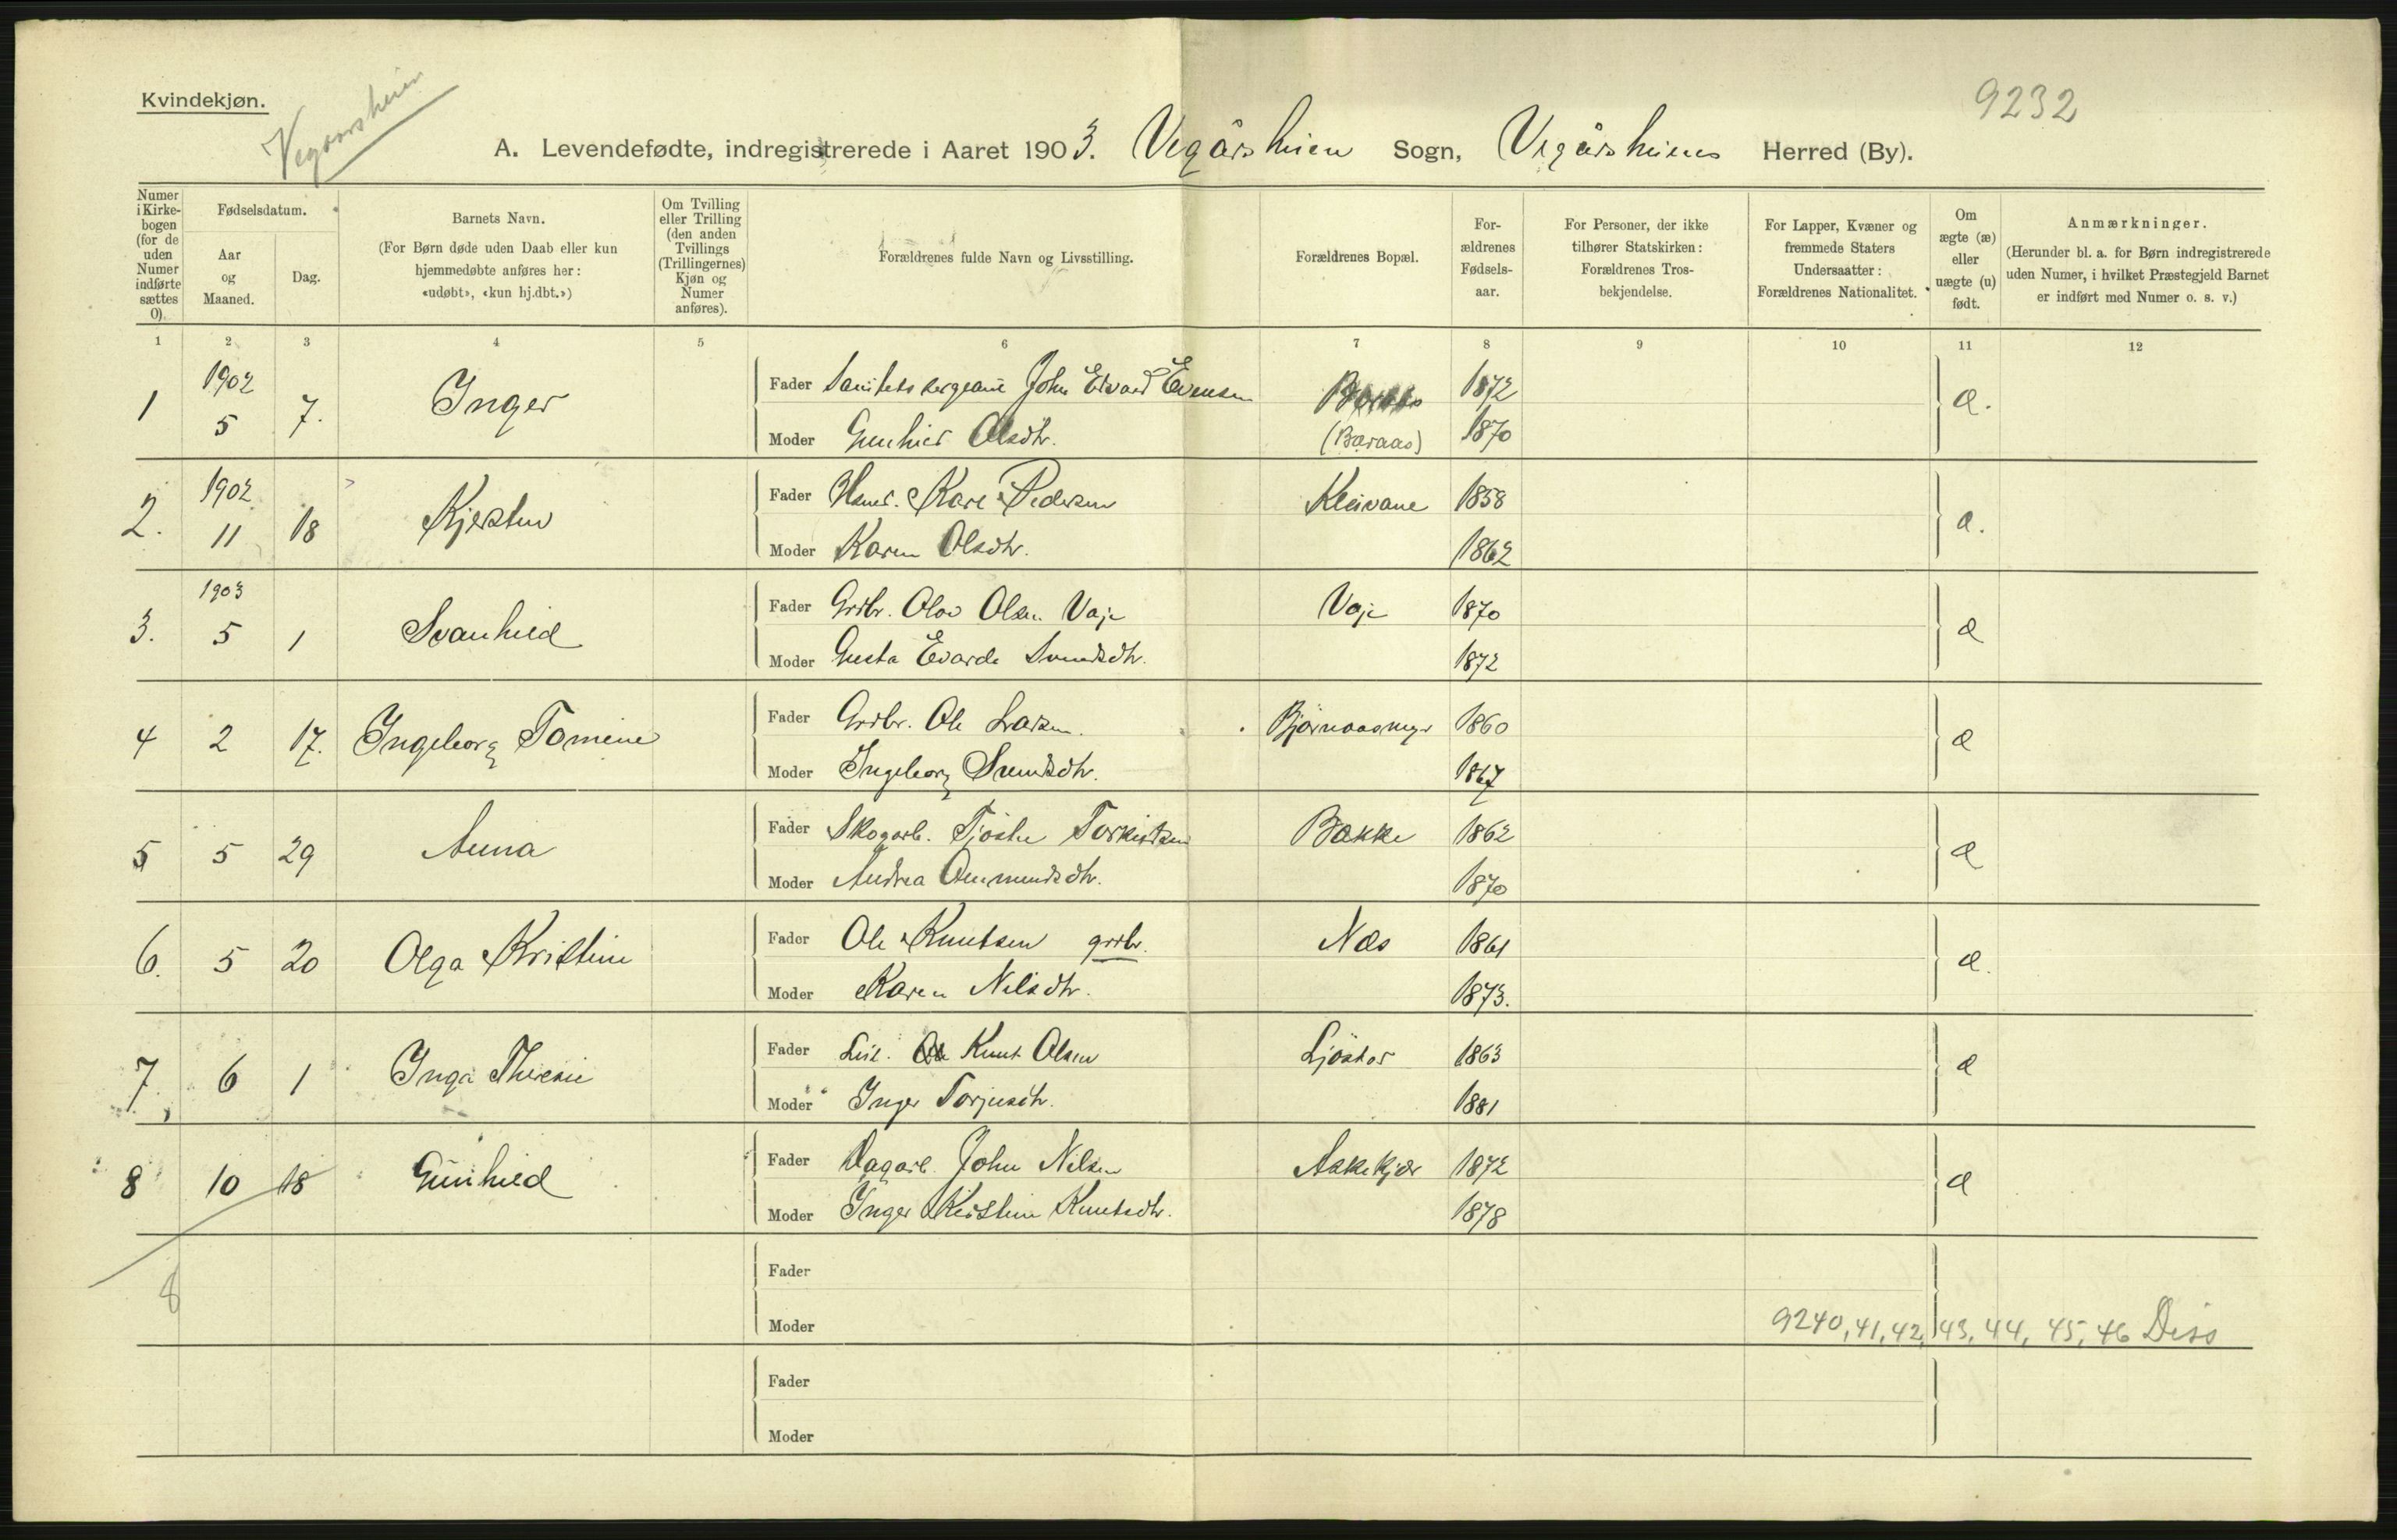 Kvindekjøn.
Vegaarsheien
9232
A. Levendefødte, indregistrerede i Aaret 1903. Vegårsheien Sogn, Vegårsheiens Herred (By).
Numer i Kirkebogen (for de uden Numer indførte sættes 0).
Fødselsdatum.
Aar og Maaned.
Dag.
Barnets Navn.
(For Børn døde uden Daab eller kun hjemmedøbte anføres her: «udøbt», «kun hj.dbt.»)
Om Tvilling eller Trilling (den anden Tvillings (Trillingernes) Kjøn og Numer anføres).
Forældrenes fulde Navn og Livsstilling.
Forældrenes Bopæl.
For-ældrenes Fødsels-aar.
For Personer, der ikke tilhører Statskirken: Forældrenes Tros-bekjendelse.
For Lapper, Kvæner og fremmede Staters Undersaatter: Forældrenes Nationalitet.
Om ægte (æ) eller uægte (u) født.
Anmærkninger.
(Herunder bl. a. for Børn indregistrerede uden Numer, i hvilket Præstegjeld Barnet er indført med Numer o. s. v.)
1 2 3 4 5 6 7 8 9 10 11 12
1 1902 5 7. Inger Fader Sanitetssergeant John Edvard Evensen 1872 æ.
Moder Gunhild Olsdtr. (Baraas) 1870
2. 1902 11 18 Kjersten Fader Kare Pedersen Kleivane 1858 æ.
Moder Karen Olsdtr. 1862
3. 1903 5 1 Svanhild Fader Grdbr. Olav Olsen Vaje Vaje 1870 æ
Moder Gusta Evarda Svendsdtr. 1872
4 2 17. Ingeborg Tomine Fader Grdbr. Ole Larsen. Bjørnaasmyr 1860 æ
Moder Ingeborg Svendsdtr. 1867
5 5 29 Anna Fader Skogarb. Tjøstu Torkildsen Bakke 1862 æ
Moder Andrea Ommundsdtr. 1870
6. 5 20 Olga Kristine Fader Ole Knutsen grdbr. Næs 1861 æ.
Moder Karen Nilsdtr. 1873.
7. 6 1 Inga Theresie Fader Knut Olsen Ljøstad 1863 æ
Moder Inger Torjusdtr. 1881
8 10 18 Gunhild Fader Dagarb. John Nilsen Askekjær 1872 æ
Moder Inger Kirstine Knutsdtr. 1878
8
Fader
Moder
9240, 41, 42, 43, 44, 45, 46 Diss
Fader
Moder